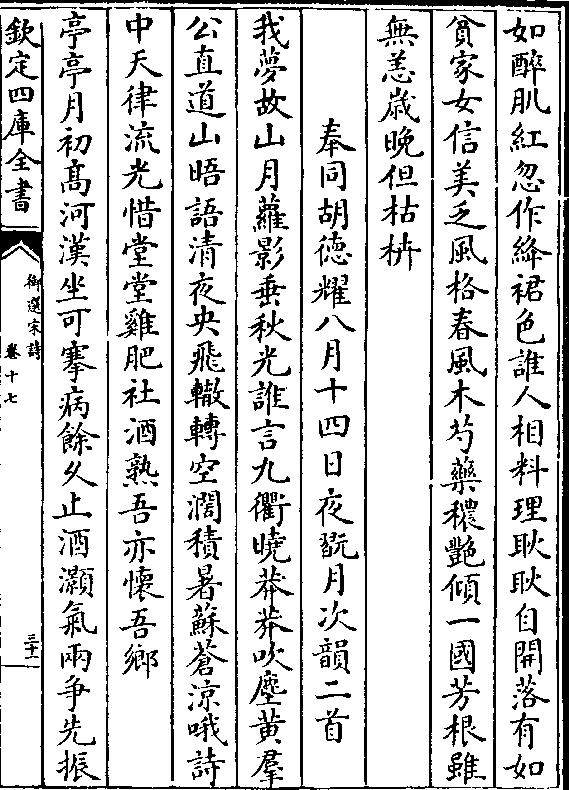 如醉肌紅忽作絳裙色誰人相料理耿耿自開落有如
貧家女信美乏風格春風木芍藥穠艷傾一國芳根雖
無恙歳晚但枯枿
奉同胡徳耀八月十四日夜翫月次韻二首
我夢故山月蘿影垂秋光誰言九衢曉莽莽吹塵黄羣
公直道山晤語清夜央飛轍轉空濶積暑蘇蒼涼哦詩
中天律流光惜堂堂雞肥社酒熟吾亦懐吾鄉
亭亭月初髙河漢坐可搴病餘久止酒灝氣兩争先振
欽定四庫全書
御選宋詩
卷十七
三十一